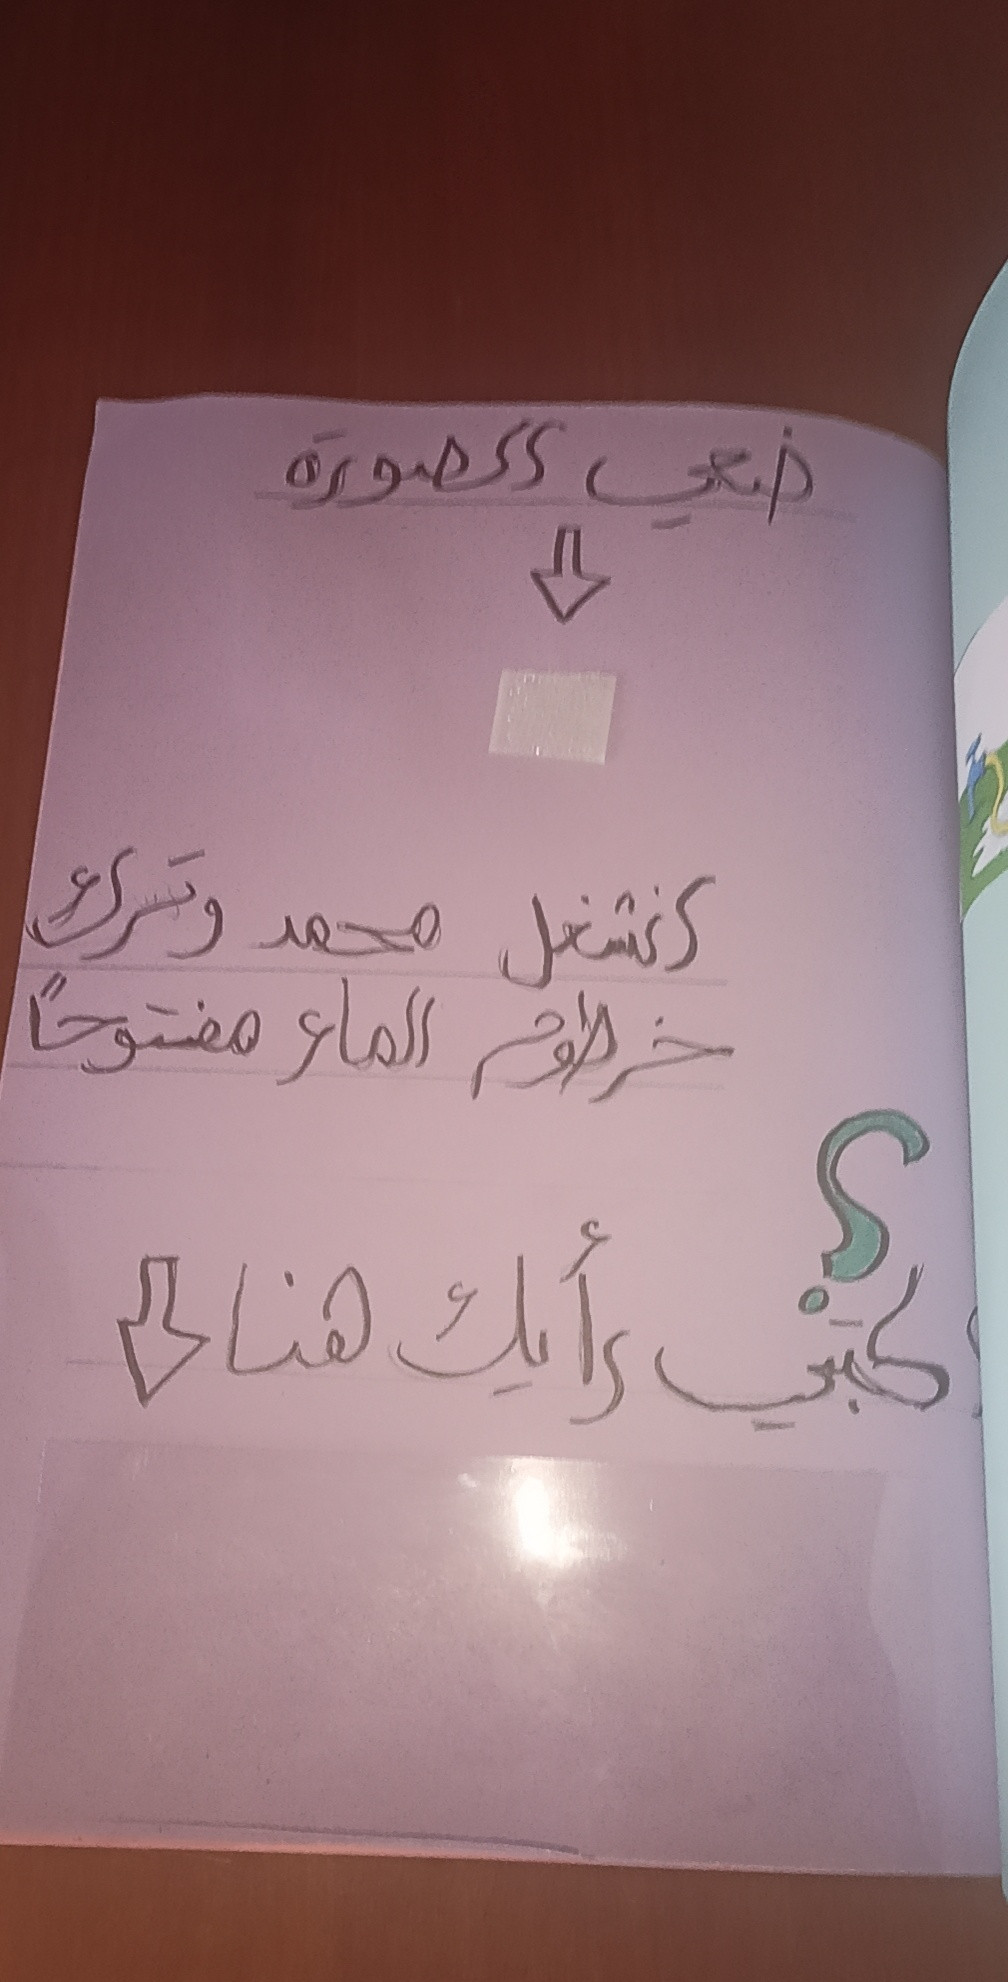 ضعي الصورة
انشغل محمد وترك
خرطوم الماء مفتوحاً
؟
اكتبي رأيك هنا